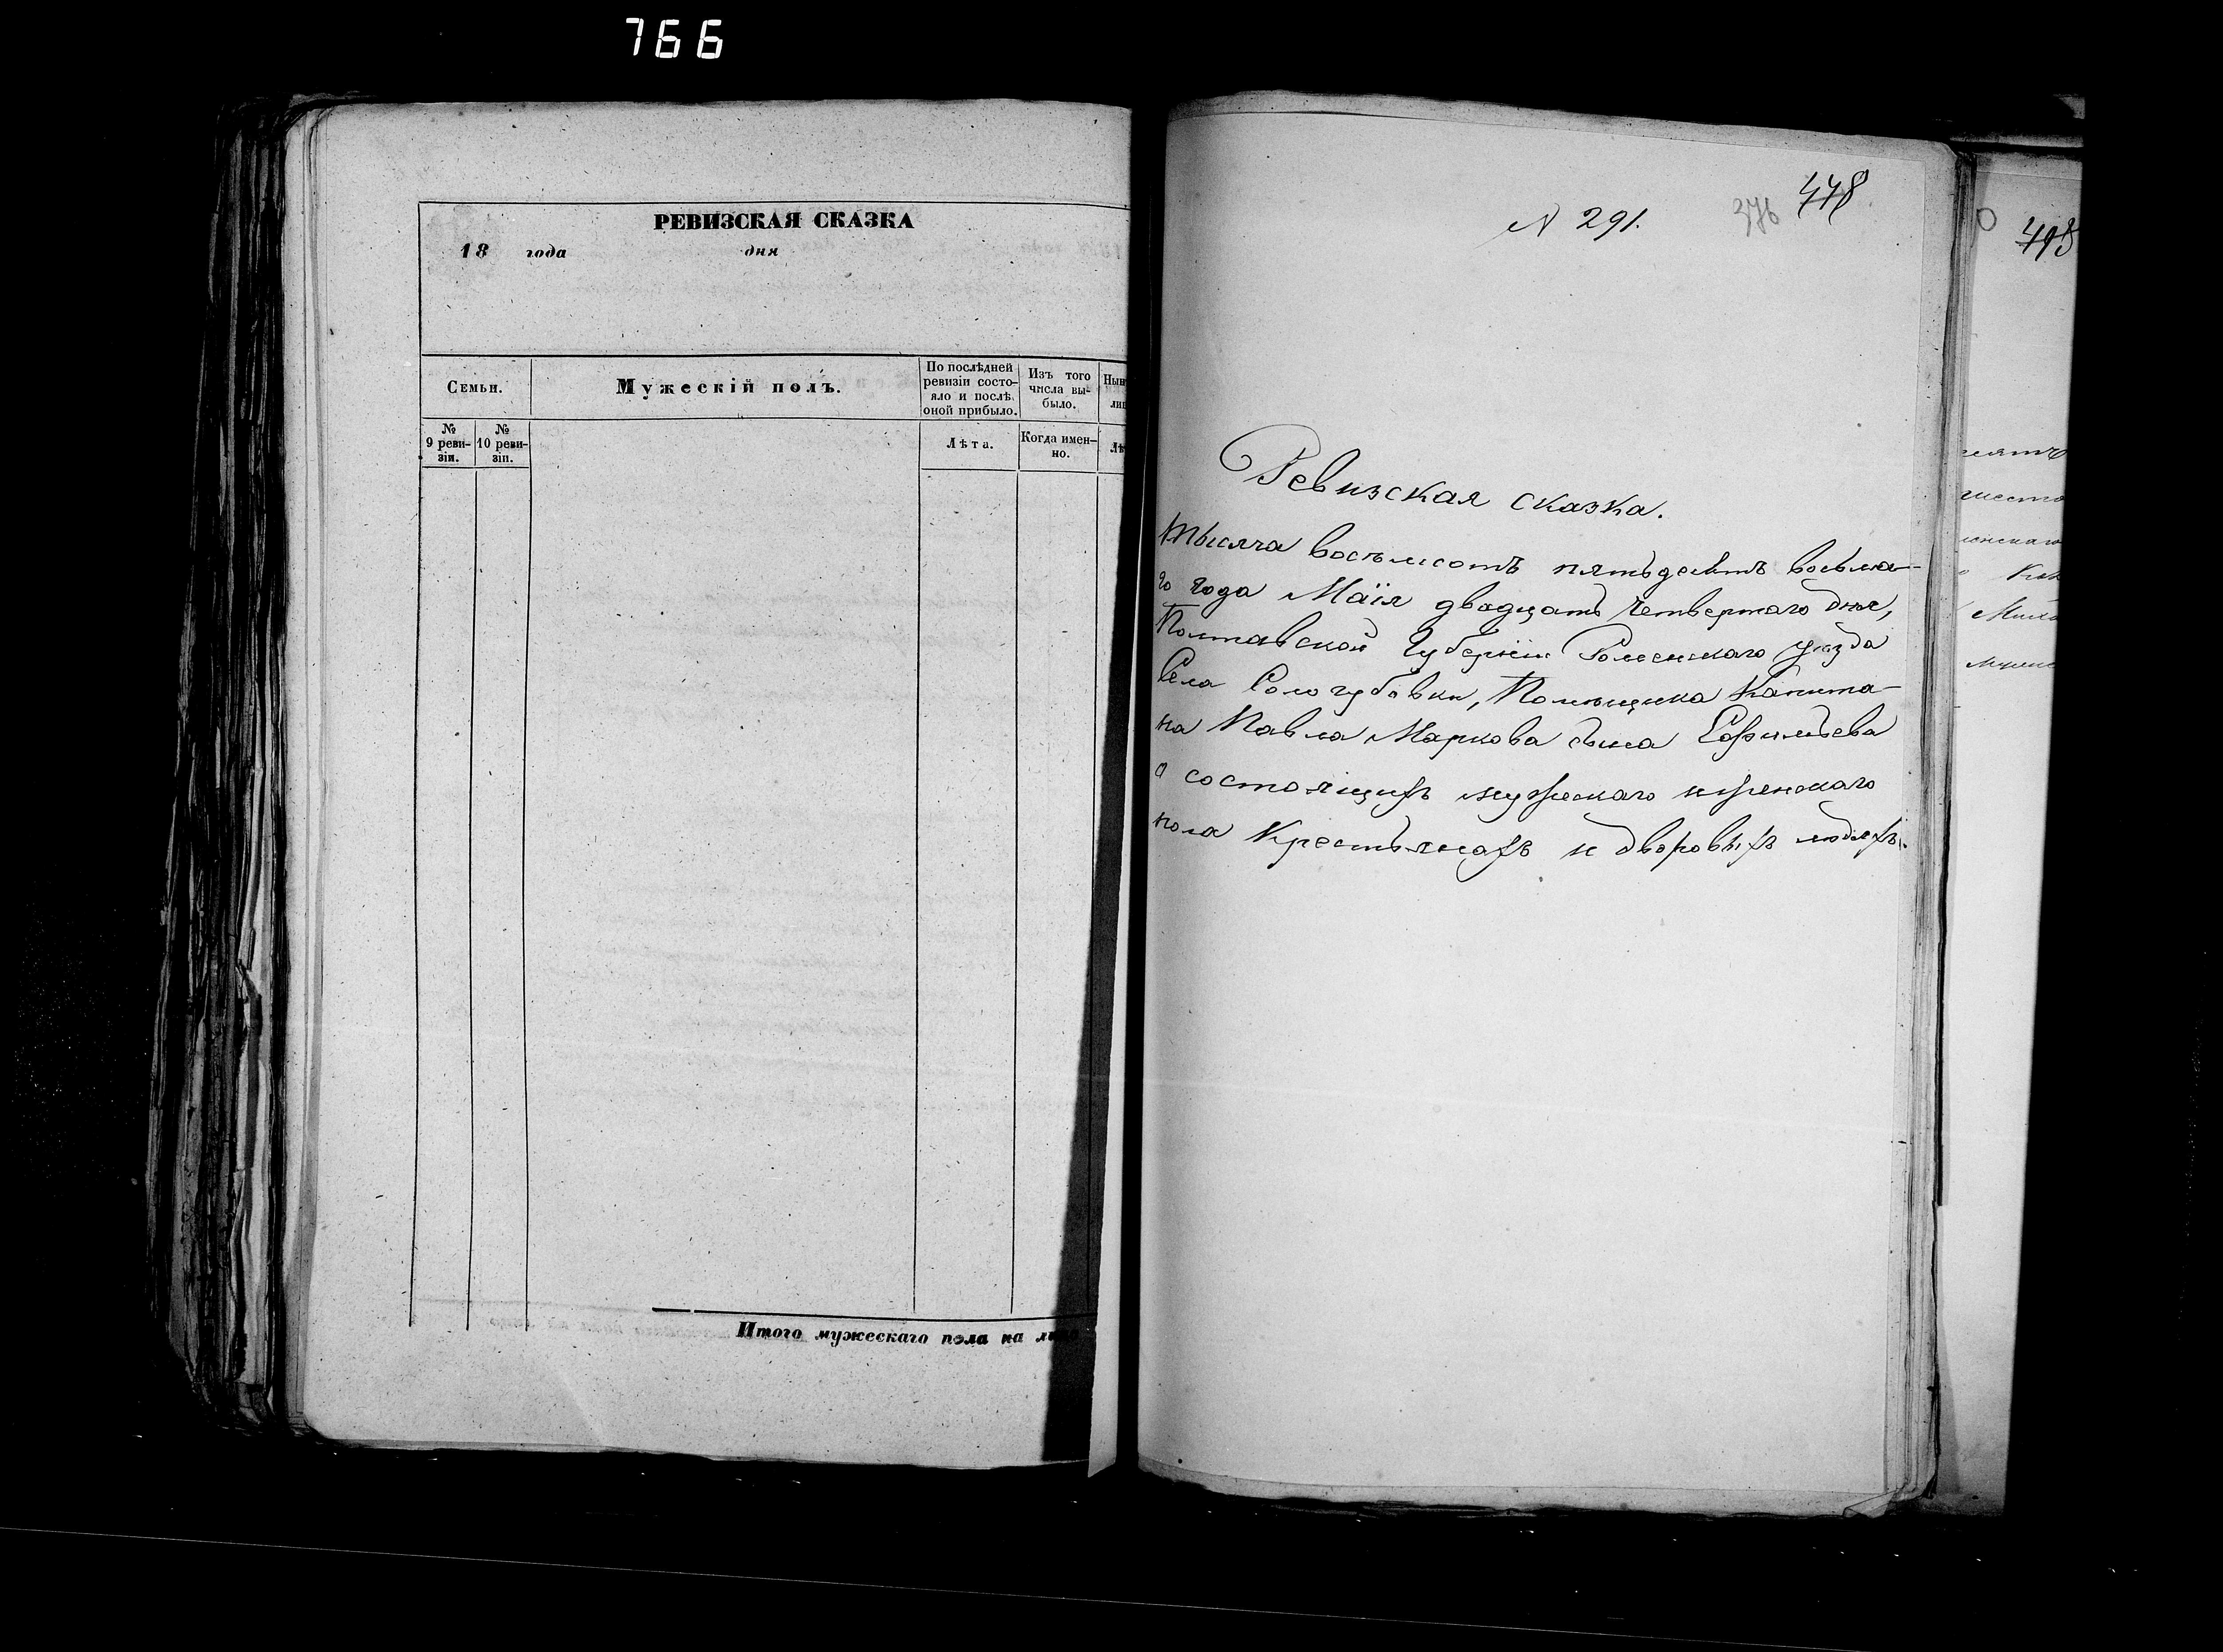 766
РЕВИЗСКАЯ СКАЗКА
18 года дня
Семьи.
Мужескій полъ.
По послѣдней ревизіи состо-
яло и послѣ оной прибыло.
Изъ того числа вы-
было.
№ 9 реви-
зіи.
№ 10 реви-
зіи.
Лѣта.
Когда имен-
но.
Итого мужескаго пола на
N 291.
376
478
Ревизская сказка.
Тысяча восемьсотъ пятьдесятъ восьма-
го года Маія двадцать четвертаго дня,
Полтавской Губерніи Роменскаго уѣзда
Села Сологубовки, Помѣщика Капита-
на Павла Маркова сына
о состоящихъ мужескаго и женскаго
пола Крестьянахъ и дворовыхъ людяхъ.